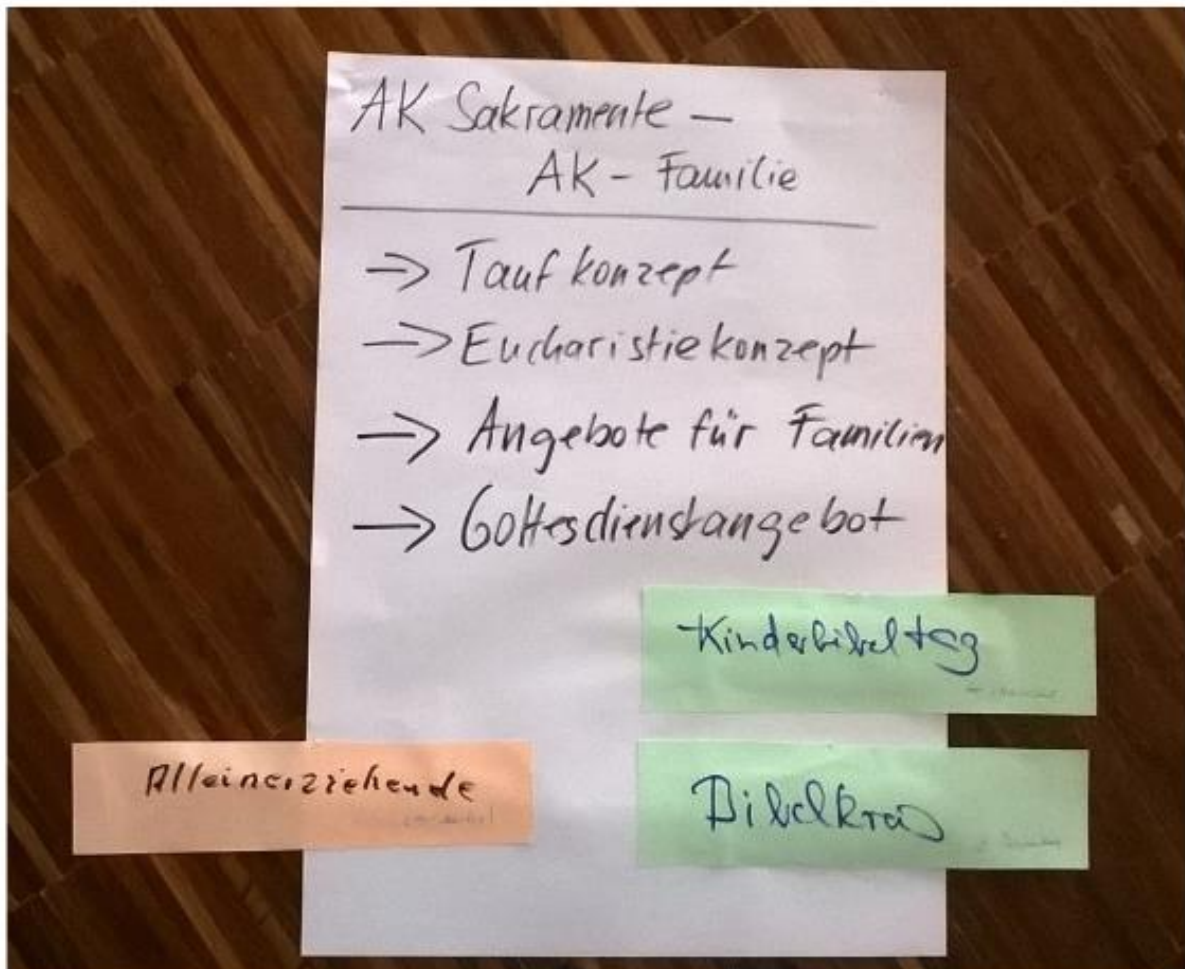 AK Sakramente —
AK - Familie
→ Taufkonzept
→ Eucharistiekonzept
→ Angebote für Familien
→ Gottesdienstangebot
Kinderbibeltag
Alleinerziehende
Bibelkreis